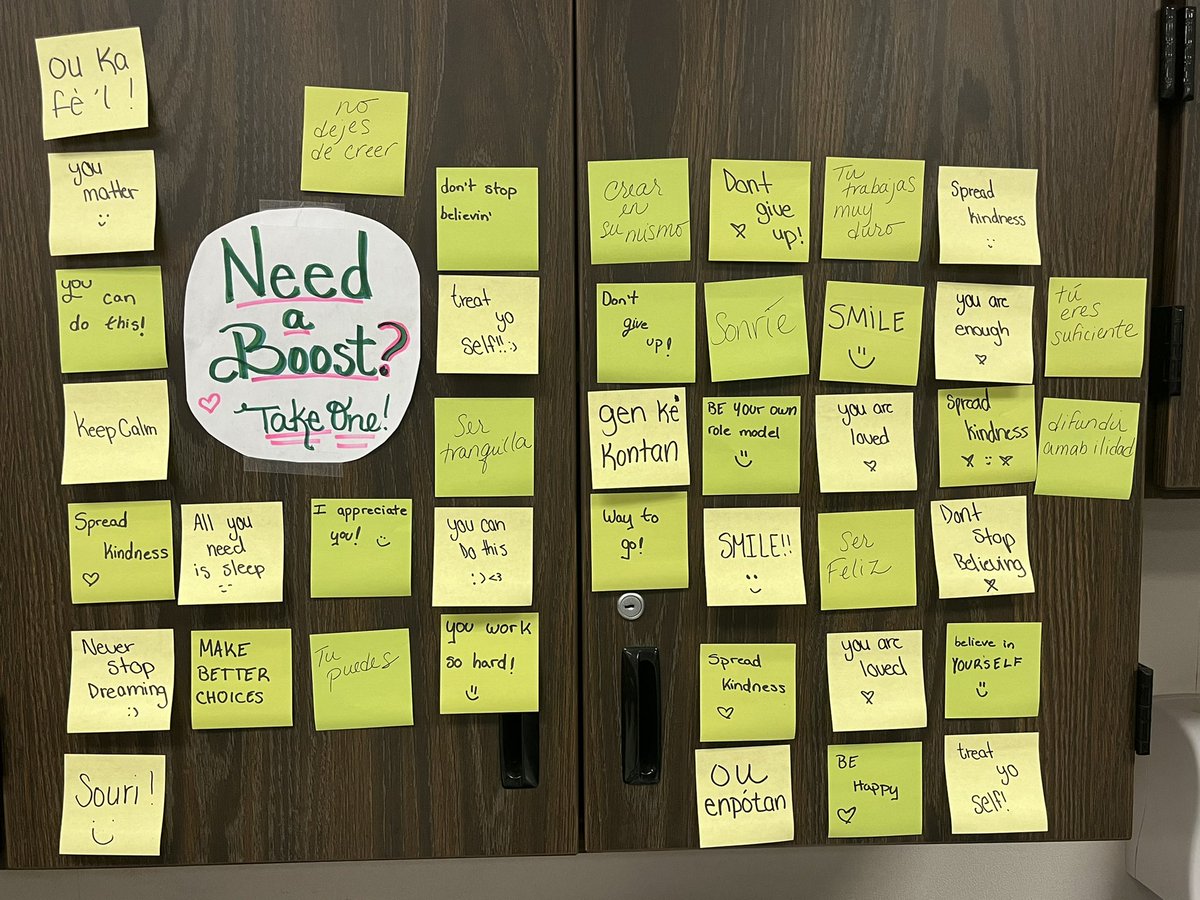 ou ka
fè 'l !
you
matter
you
can
do this!
Keep Calm
Spread
kindness
Never
Stop
Dreaming
:)
Souri !
no
dejes
de creer
Need
a
Boost?
Take One!
All you
need
is sleep
I appreciate
you!
MAKE
BETTER
CHOICES
Tu
puedes
don't stop
believin'
treat
yo
self!! :)
Ser
tranquilla
you can
Do this
:) <3
you work
so hard!
Crear
en
su mismo
Don't
give
up!
gen kè
kontan
Way to
go!
Dont
give
up!
Sonríe
BE YOUR own
role model
SMILE!!
Spread
kindness
ou
enpótan
Tu
trabajas
muy
duro
SMILE
you are
loved
Ser
Feliz
you are
loved
BE
Happy
Spread
kindness
you are
enough
Spread
kindness
Dont
Stop
Believing
believe in
YOURSELF
treat
yo
self!
tú
eres
suficiente
difundir
amabilidad